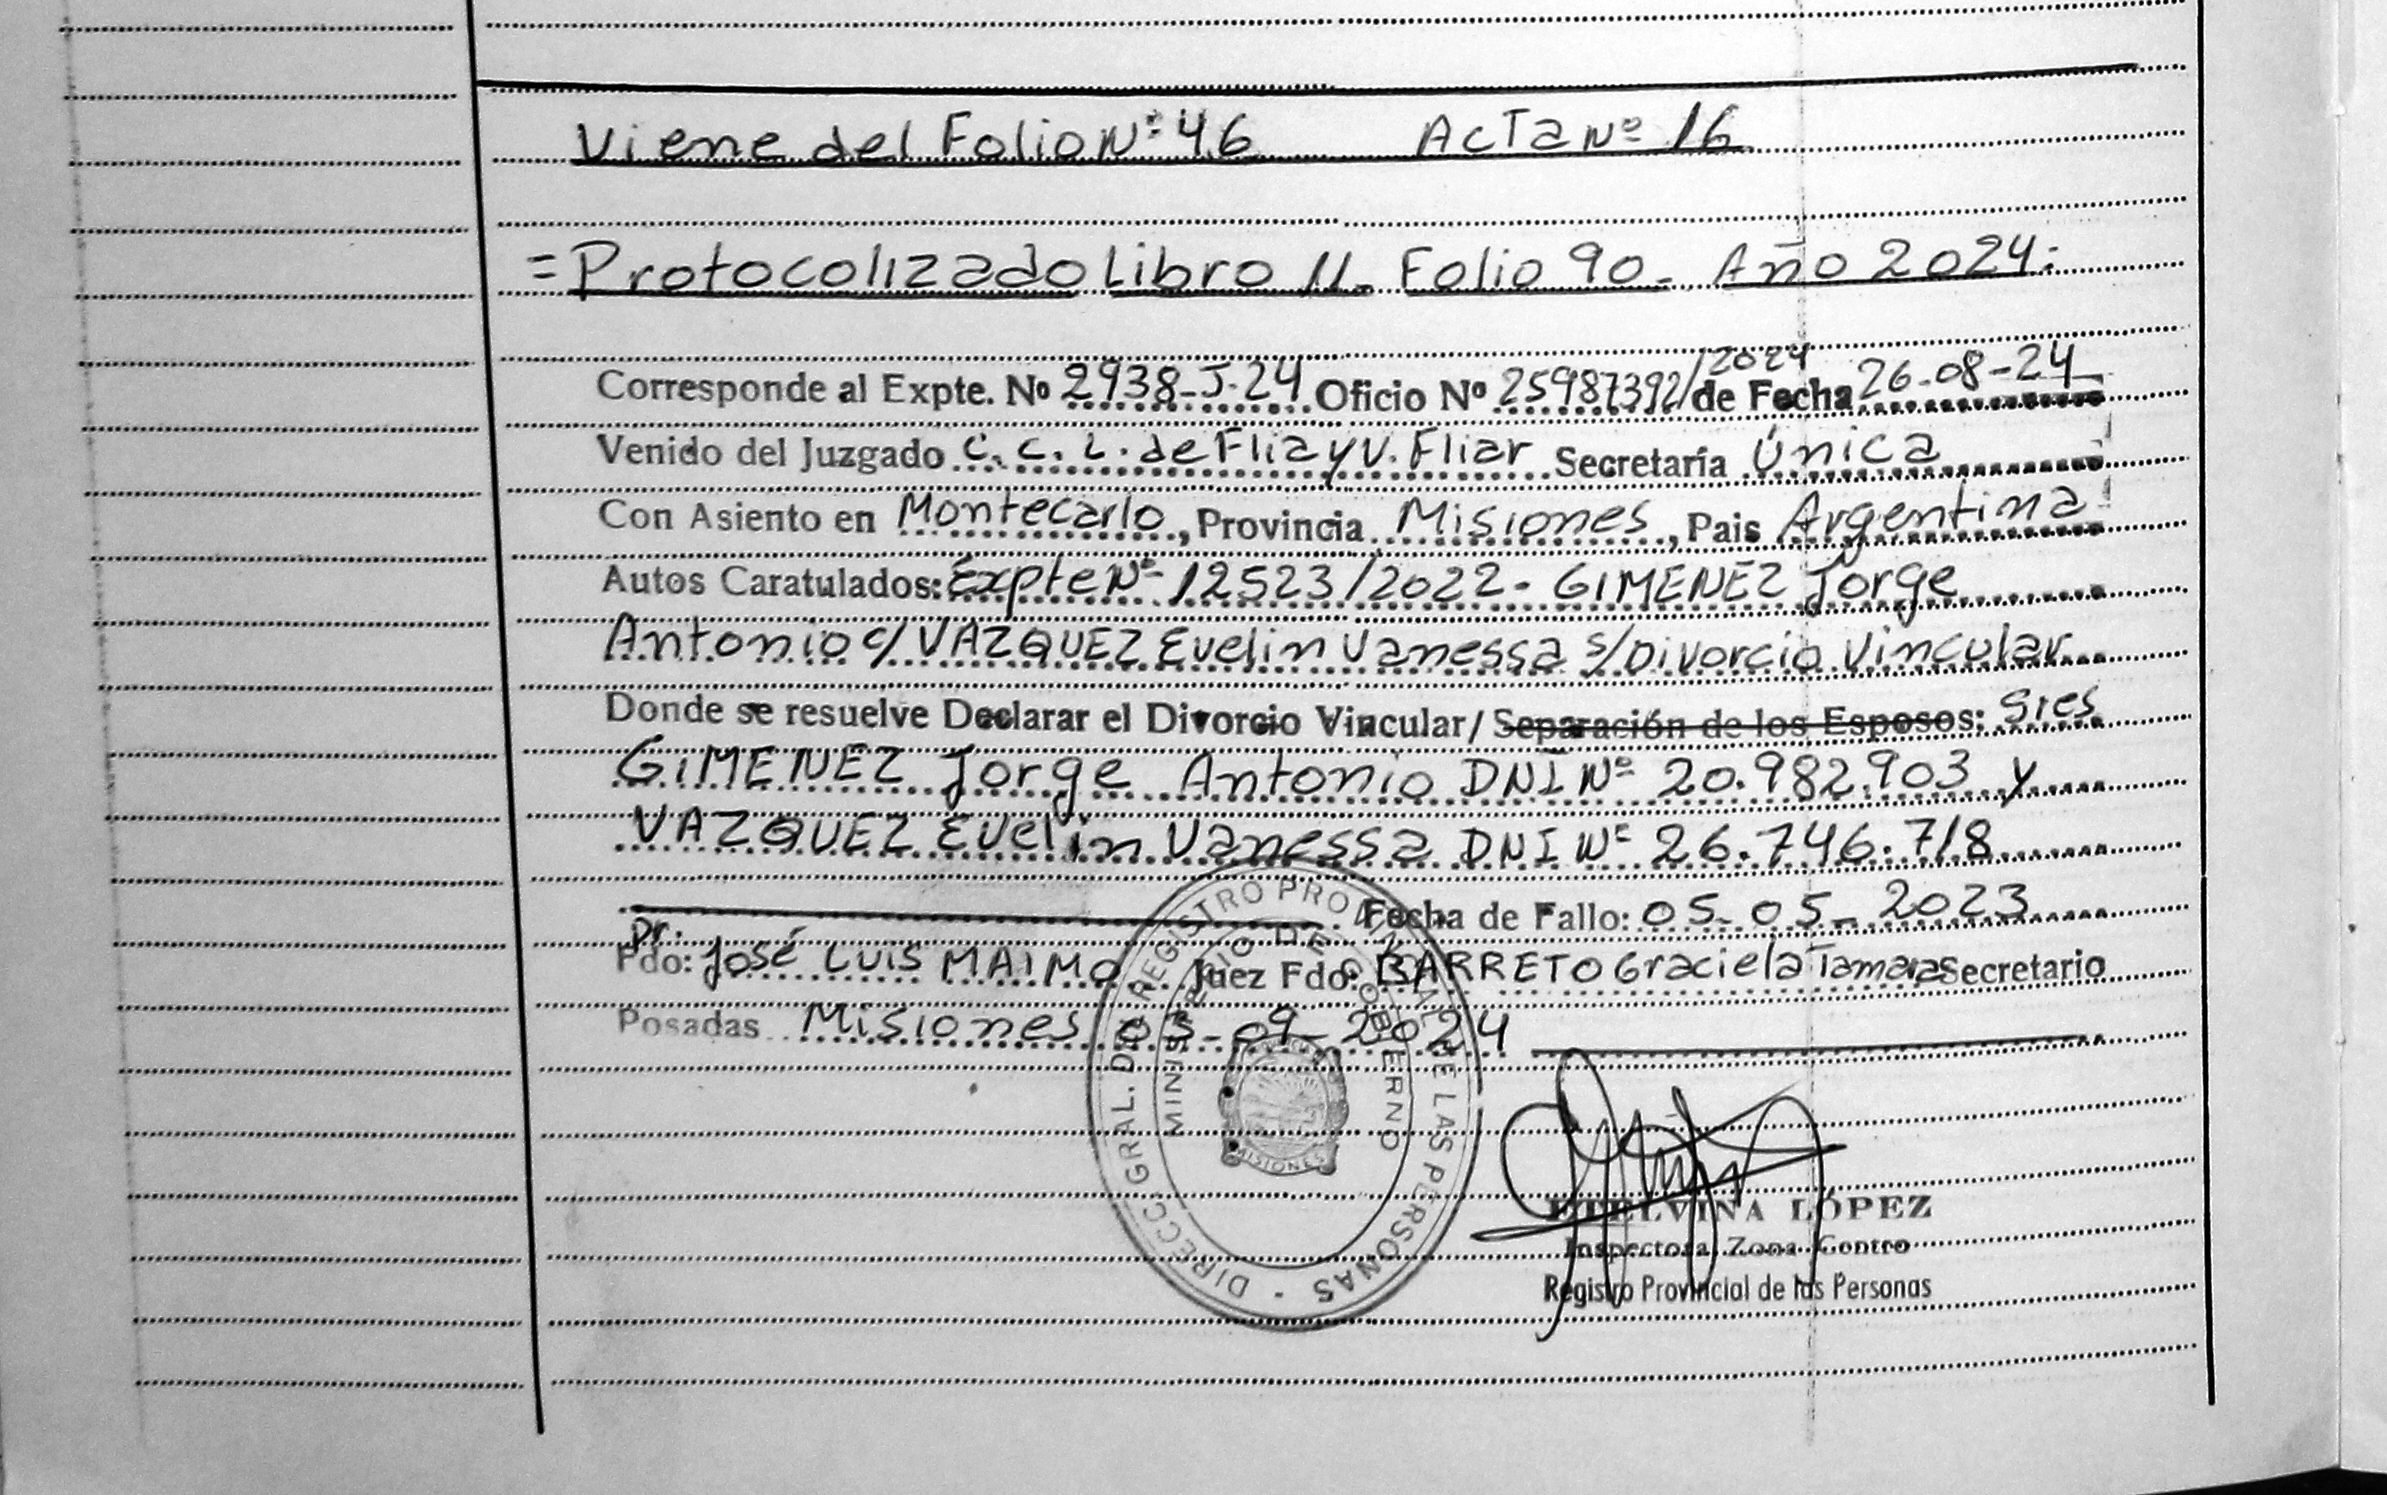 Viene del Folio Nº 46 Acta Nº 16
= Protocolizado Libro 11. Folio 90- Año 2024:
Corresponde al Expte. Nº 2938-J-24 Oficio Nº 25987392/2024 de Fecha 26-08-24
Venido del Juzgado C. C. L. de Flia y V. Fliar Secretaría Única
Con Asiento en Montecarlo, Provincia Misiones, Pais Argentina
Autos Caratulados: Expte Nº 12523/2022- GIMENEZ Jorge
Antonio c/ VAZQUEZ Evelin Vanessa s/ Divorcio Vincular
Donde se resuelve Declarar el Divorcio Vincular/ Separación de los Esposos: Sres
GIMENEZ Jorge Antonio DNI Nº 20.982.903 y
VAZQUEZ Evelin Vanessa DNI Nº 26.746.718
Fecha de Fallo: 05-05-2023
Dr.
Fdo: José Luis MAIMO Juez Fdo: BARRETO Graciela Tamara Secretario
Posadas Misiones 03-09-2024
DIRECC. GRAL. DEL REGISTRO PROVINCIAL DE LAS PERSONAS
MINISTERIO DE GOBIERNO
MISIONES
ETELVINA LÓPEZ
Inspectora Zona Centro
Registro Provincial de las Personas